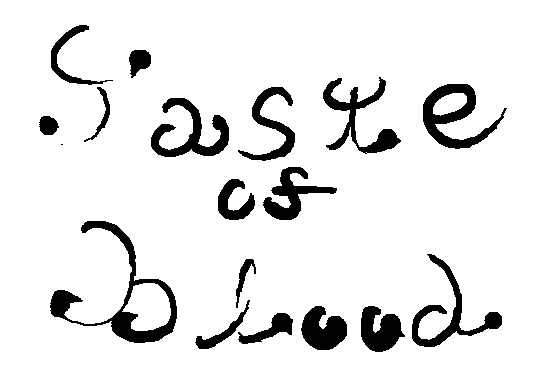 Taste
of
Blood